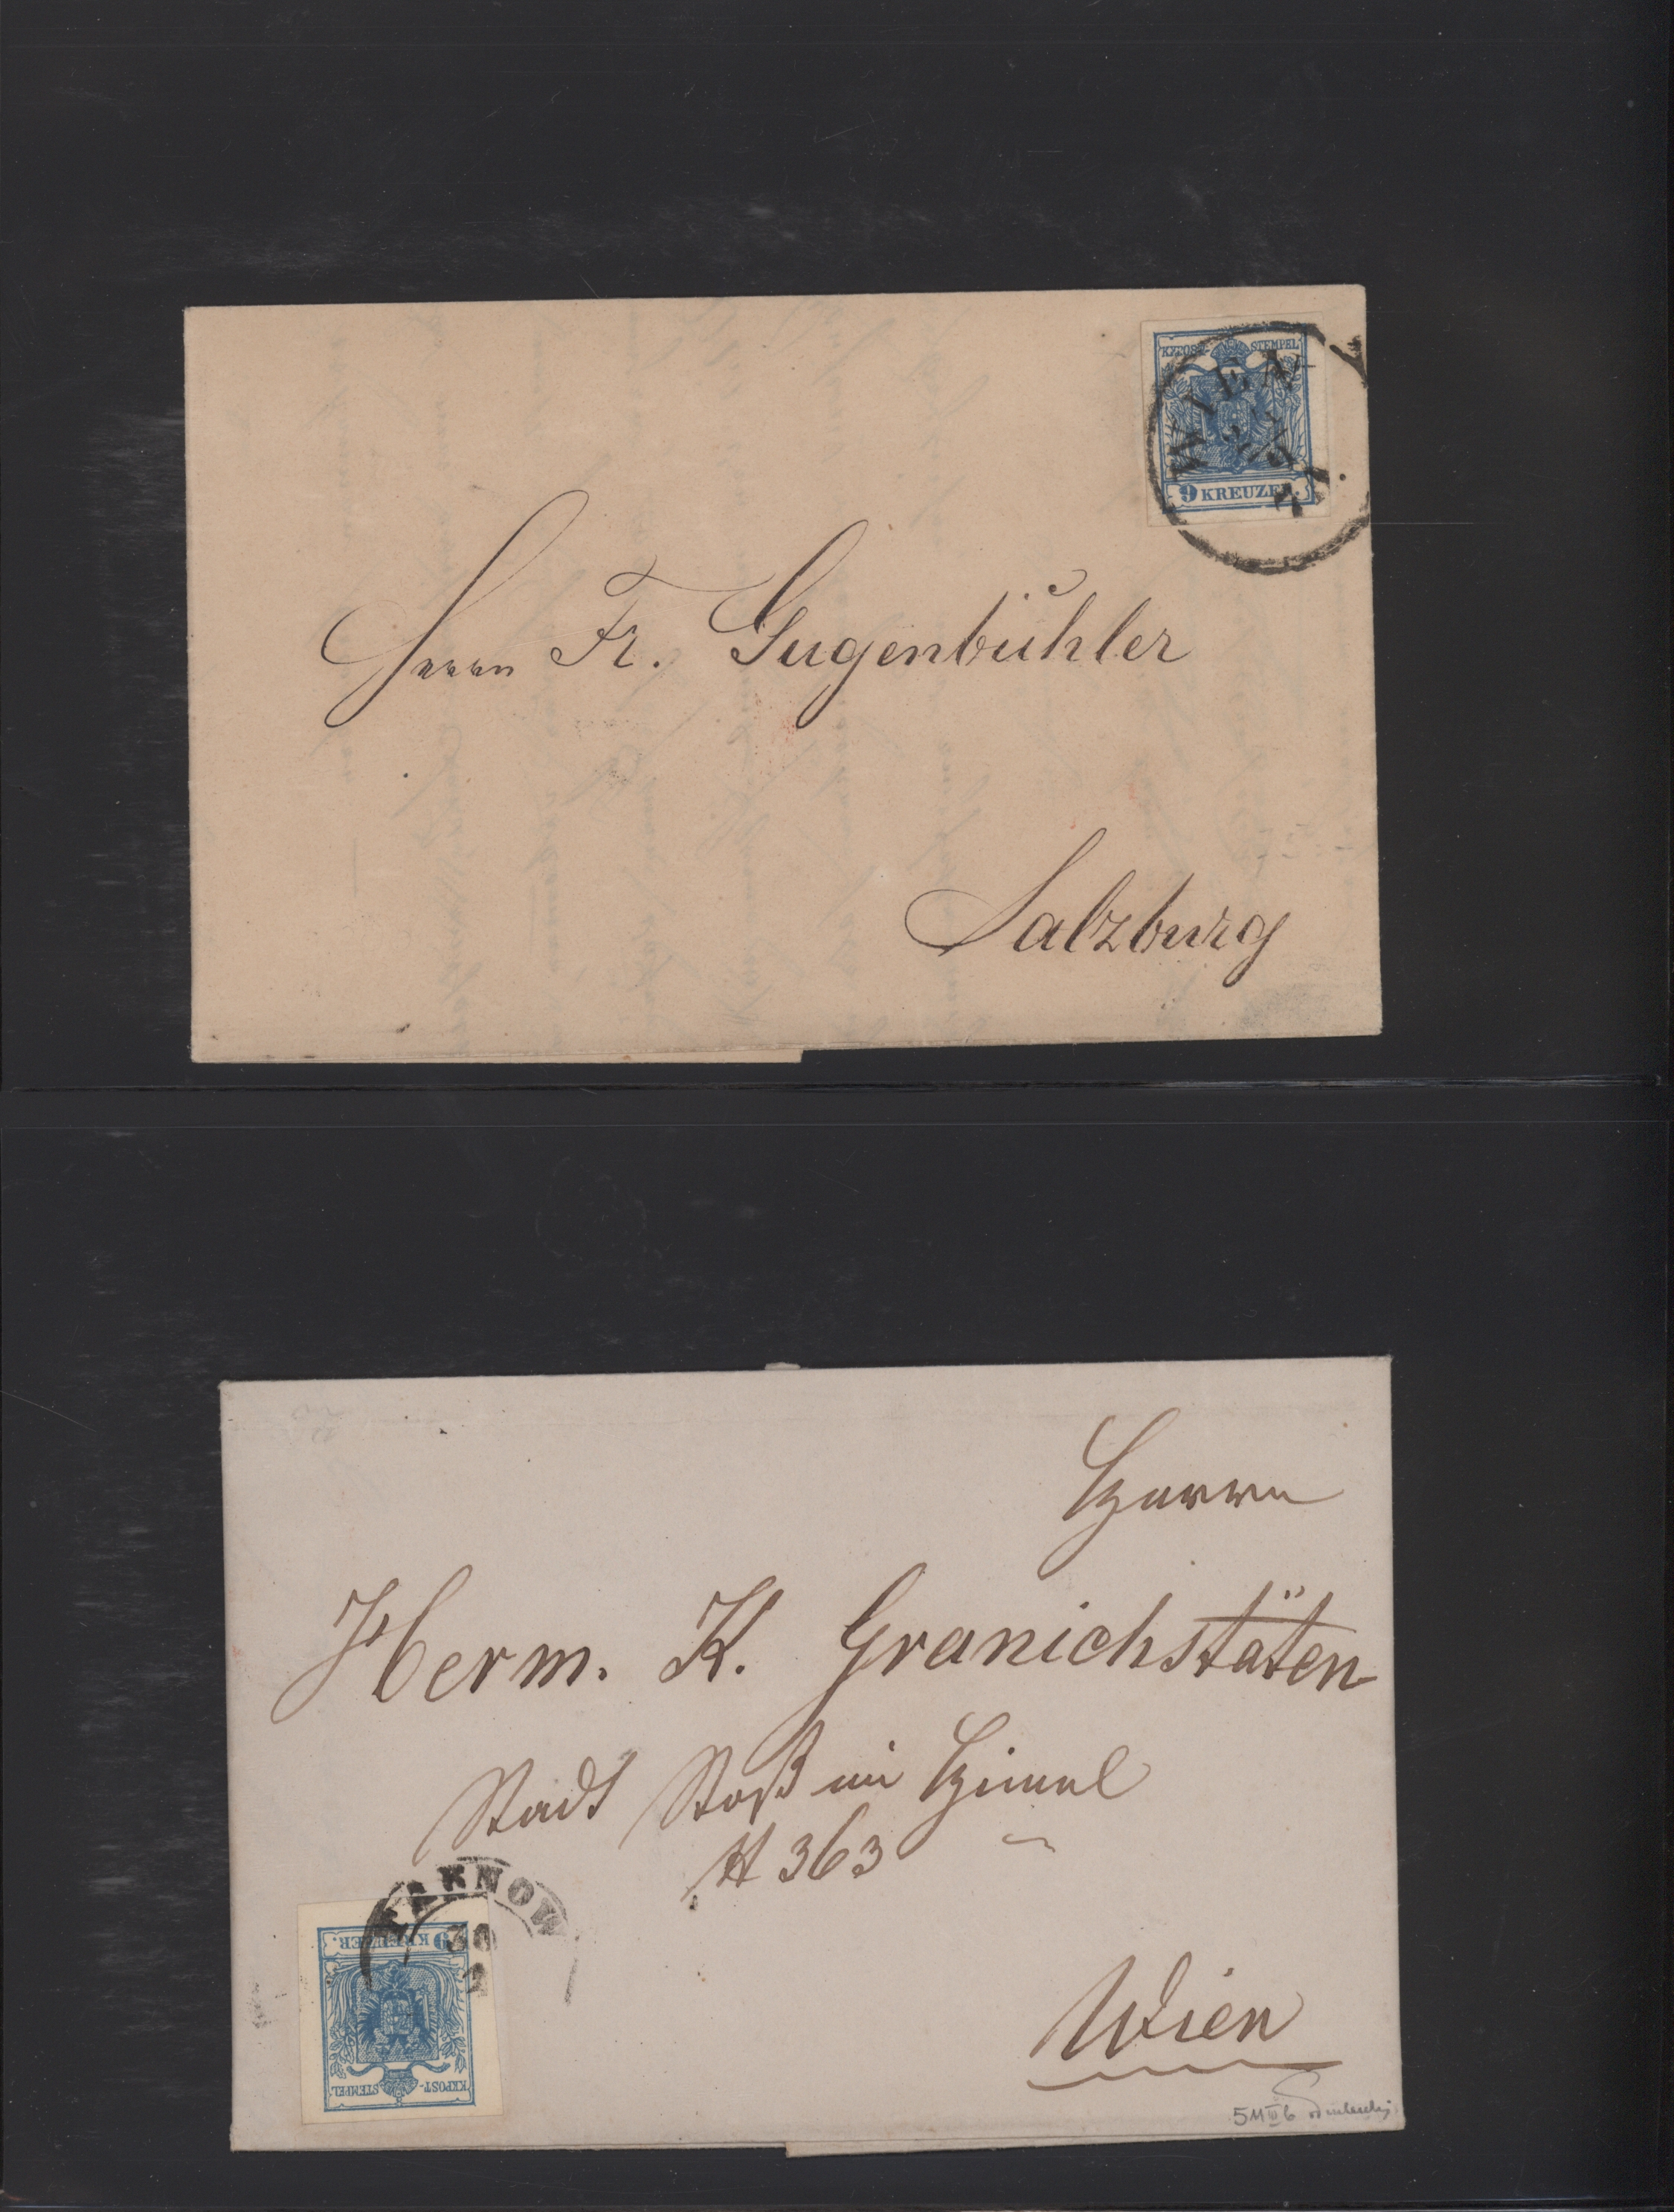 KKPOST- STEMPEL
WIEN
9 KREUZER.
Herrn Fr. Gugenbühler
Salzburg
Herrn
Herm. K. Granichstäten
Stadt Stoß im Himmel
N 363
TARNOW
30
9 KREUZER.
KKPOST- STEMPEL
Wien
5M III b